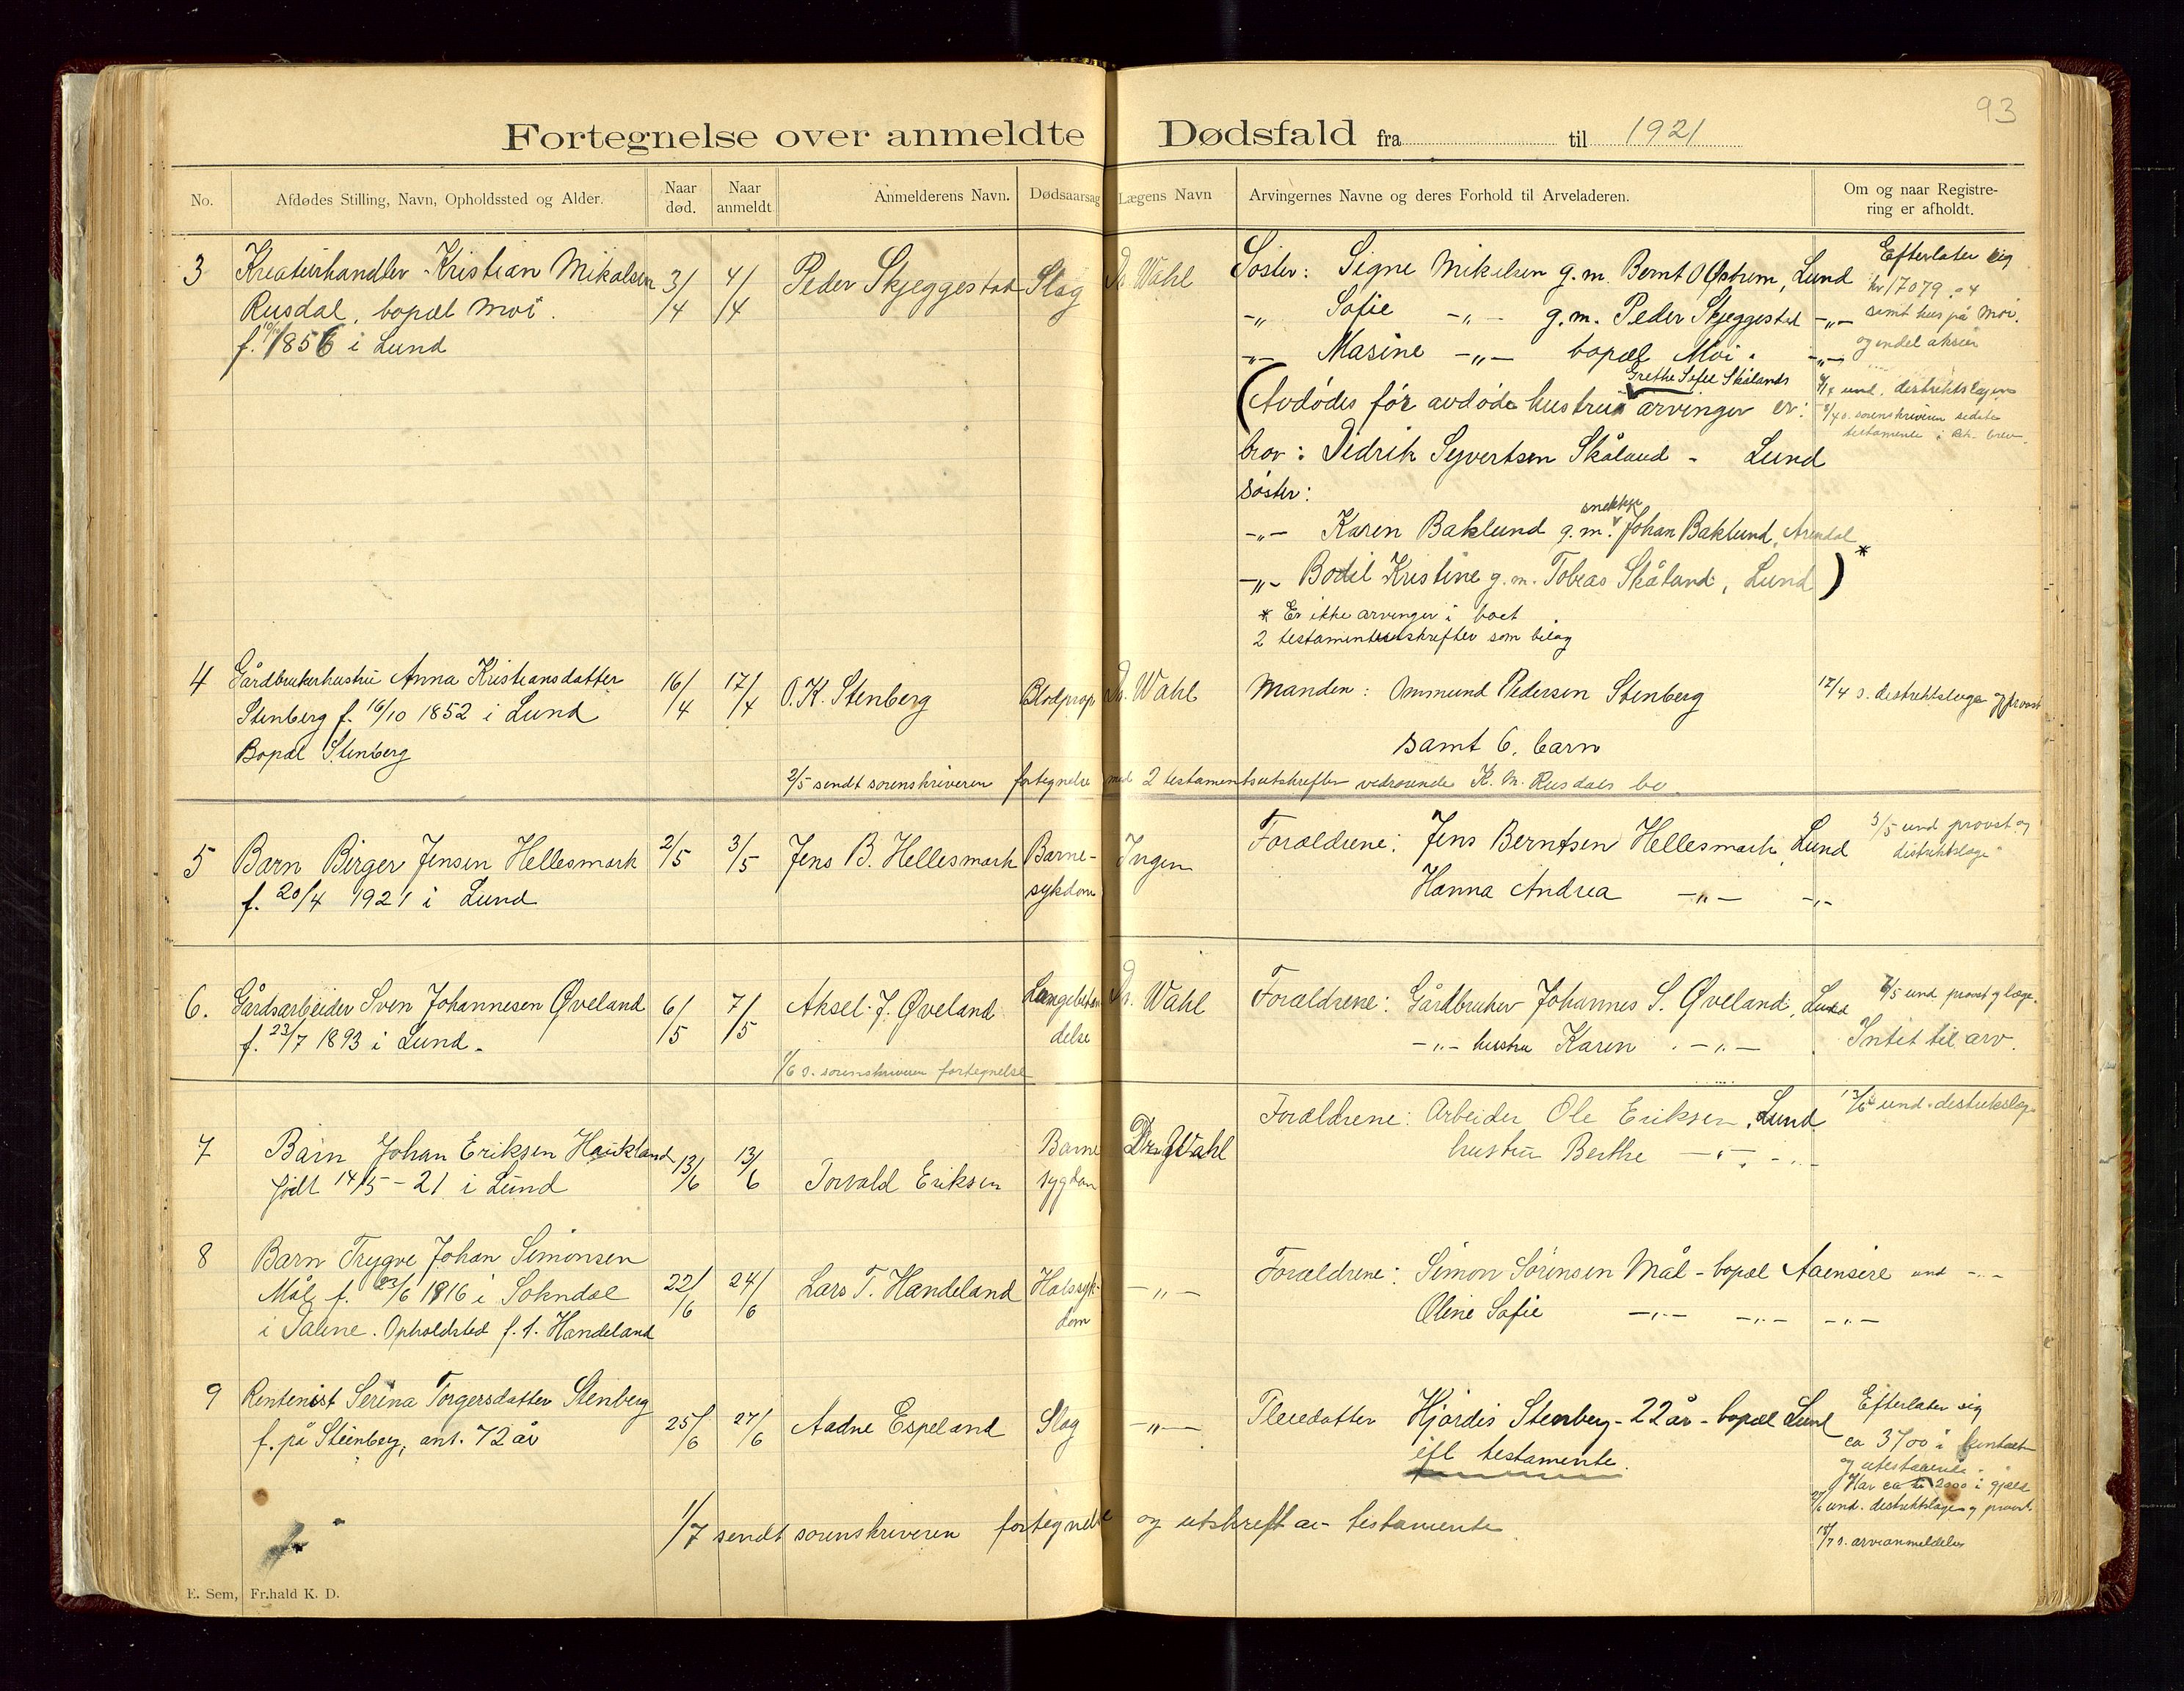 93
Fortegnelse over anmeldte Dødsfald fra til 1921
No. Afdødes Stilling, Navn, Opholdssted og Alder. Naar død. Naar anmeldt. Anmelderens Navn. Dødsaarsag Lægens Navn Arvingernes Navne og deres Forhold til Arveladeren. Om og naar Registrering er afholdt.
3 Kreaturhandler Kristian Mikalsen 3/4 4/4 Peder Skjeggestad Slag Dr Wahl
Rusdal, bopæl Moi.
f. 1856 i Lund
Søster: Signe Mikelsen g.m. Bernt O Østrem, Lund
-"- Sofie -"- g.m. Peder Skjeggestad -"-
-"- Masine -"- bopæl Moi. -"-
Grethe Sofie Skålands
(Avdødes før avdøde hustrus arvinger er:
bror: Didrik Syvertsen Skåland - Lund
søster:
snekker
-"- Karen Baklund g.m. Johan Baklund, Arendal
-"- Bodil Kristine g.m. Tobias Skåland, Lund) *
* Er ikke arvinger i boet
2 testamentsutskrifter som bilag
Efterlater sig
kr 17079.04
samt hus på Moi.
og endel aksier
4/4 und. distriktslægen
s. sorenskriveren sidste
testamente i brev
4 Gårdbrukerhustru Anna Kristiansdatter 16/4 17/4 O. K. Stenberg Blodprop Dr. Wahl Manden: Ommund Pedersen Stenberg 17/4 s. distriktslæge og provst
Stenberg f. 16/10 1852 i Lund
Bopæl Stenberg
samt 6. barn
2/5 sendt sorenskriveren fortegnelse med 2 testamentsutskrifter vedrørende K. M. Rusdals bo.
5 Barn Birger Jensen Hellesmark 2/5 3/5 Jens B. Hellesmark Barne- Ingen Forældrene: Jens Berntsen Hellesmark, Lund 3/5 und provst og
f. 20/4 1921 i Lund sykdom Hanna Andrea -"- -"- distriktslæge
6. Gårdsarbeider Sven Johannesen Øveland 6/5 7/5 Aksel J. Øveland Lungebeten Dr. Wahl Forældrene: Gårdbruker Johannes S. Øveland, Lund 7/5 und provst og læge.
f. 23/7 1893 i Lund. delse -"- hustru Karen -"- Intet til arv.
1/6 s. sorenskriveren fortegnelse
7 Barn Johan Eriksen Haukland 13/6 13/6 Torvald Eriksen Barne Dr. Wahl Forældrene: Arbeider Ole Eriksen, Lund 13/6 und. distriktslæge
født 14/5 - 21 i Lund sygdom hustru Berthe -"- -"-
8 Barn Trygve Johan Simonsen 22/6 24/6 Lars T. Handeland Halssyk- -"- Forældrene: Simon Sørensen Mål - bopæl Aaensire und -"-
Mål f. 23/6 1816 i Sokndal dom Oline Sofie -"- -"- -"-
i Dalene. Opholdsted f. t. Handeland
9 Rentenist Serina Torgersdatter Stenberg 25/6 27/6 Aadne Espeland Slag -"- Pleiedatter Hjørdis Stenberg - 22 år - bopæl Lund
f. på Stenberg, ant. 72 år
efl testamente.
Efterlater sig
ca 3700 i kontant
og utestaaende.
Har ca 2000 i gjæld
und. distriktslæge og provst
18/7 s. arveanmeldelse
1/7 sendt sorenskriveren fortegnelse og utskrift av testamente
E. Sem, Fr.hald K. D.